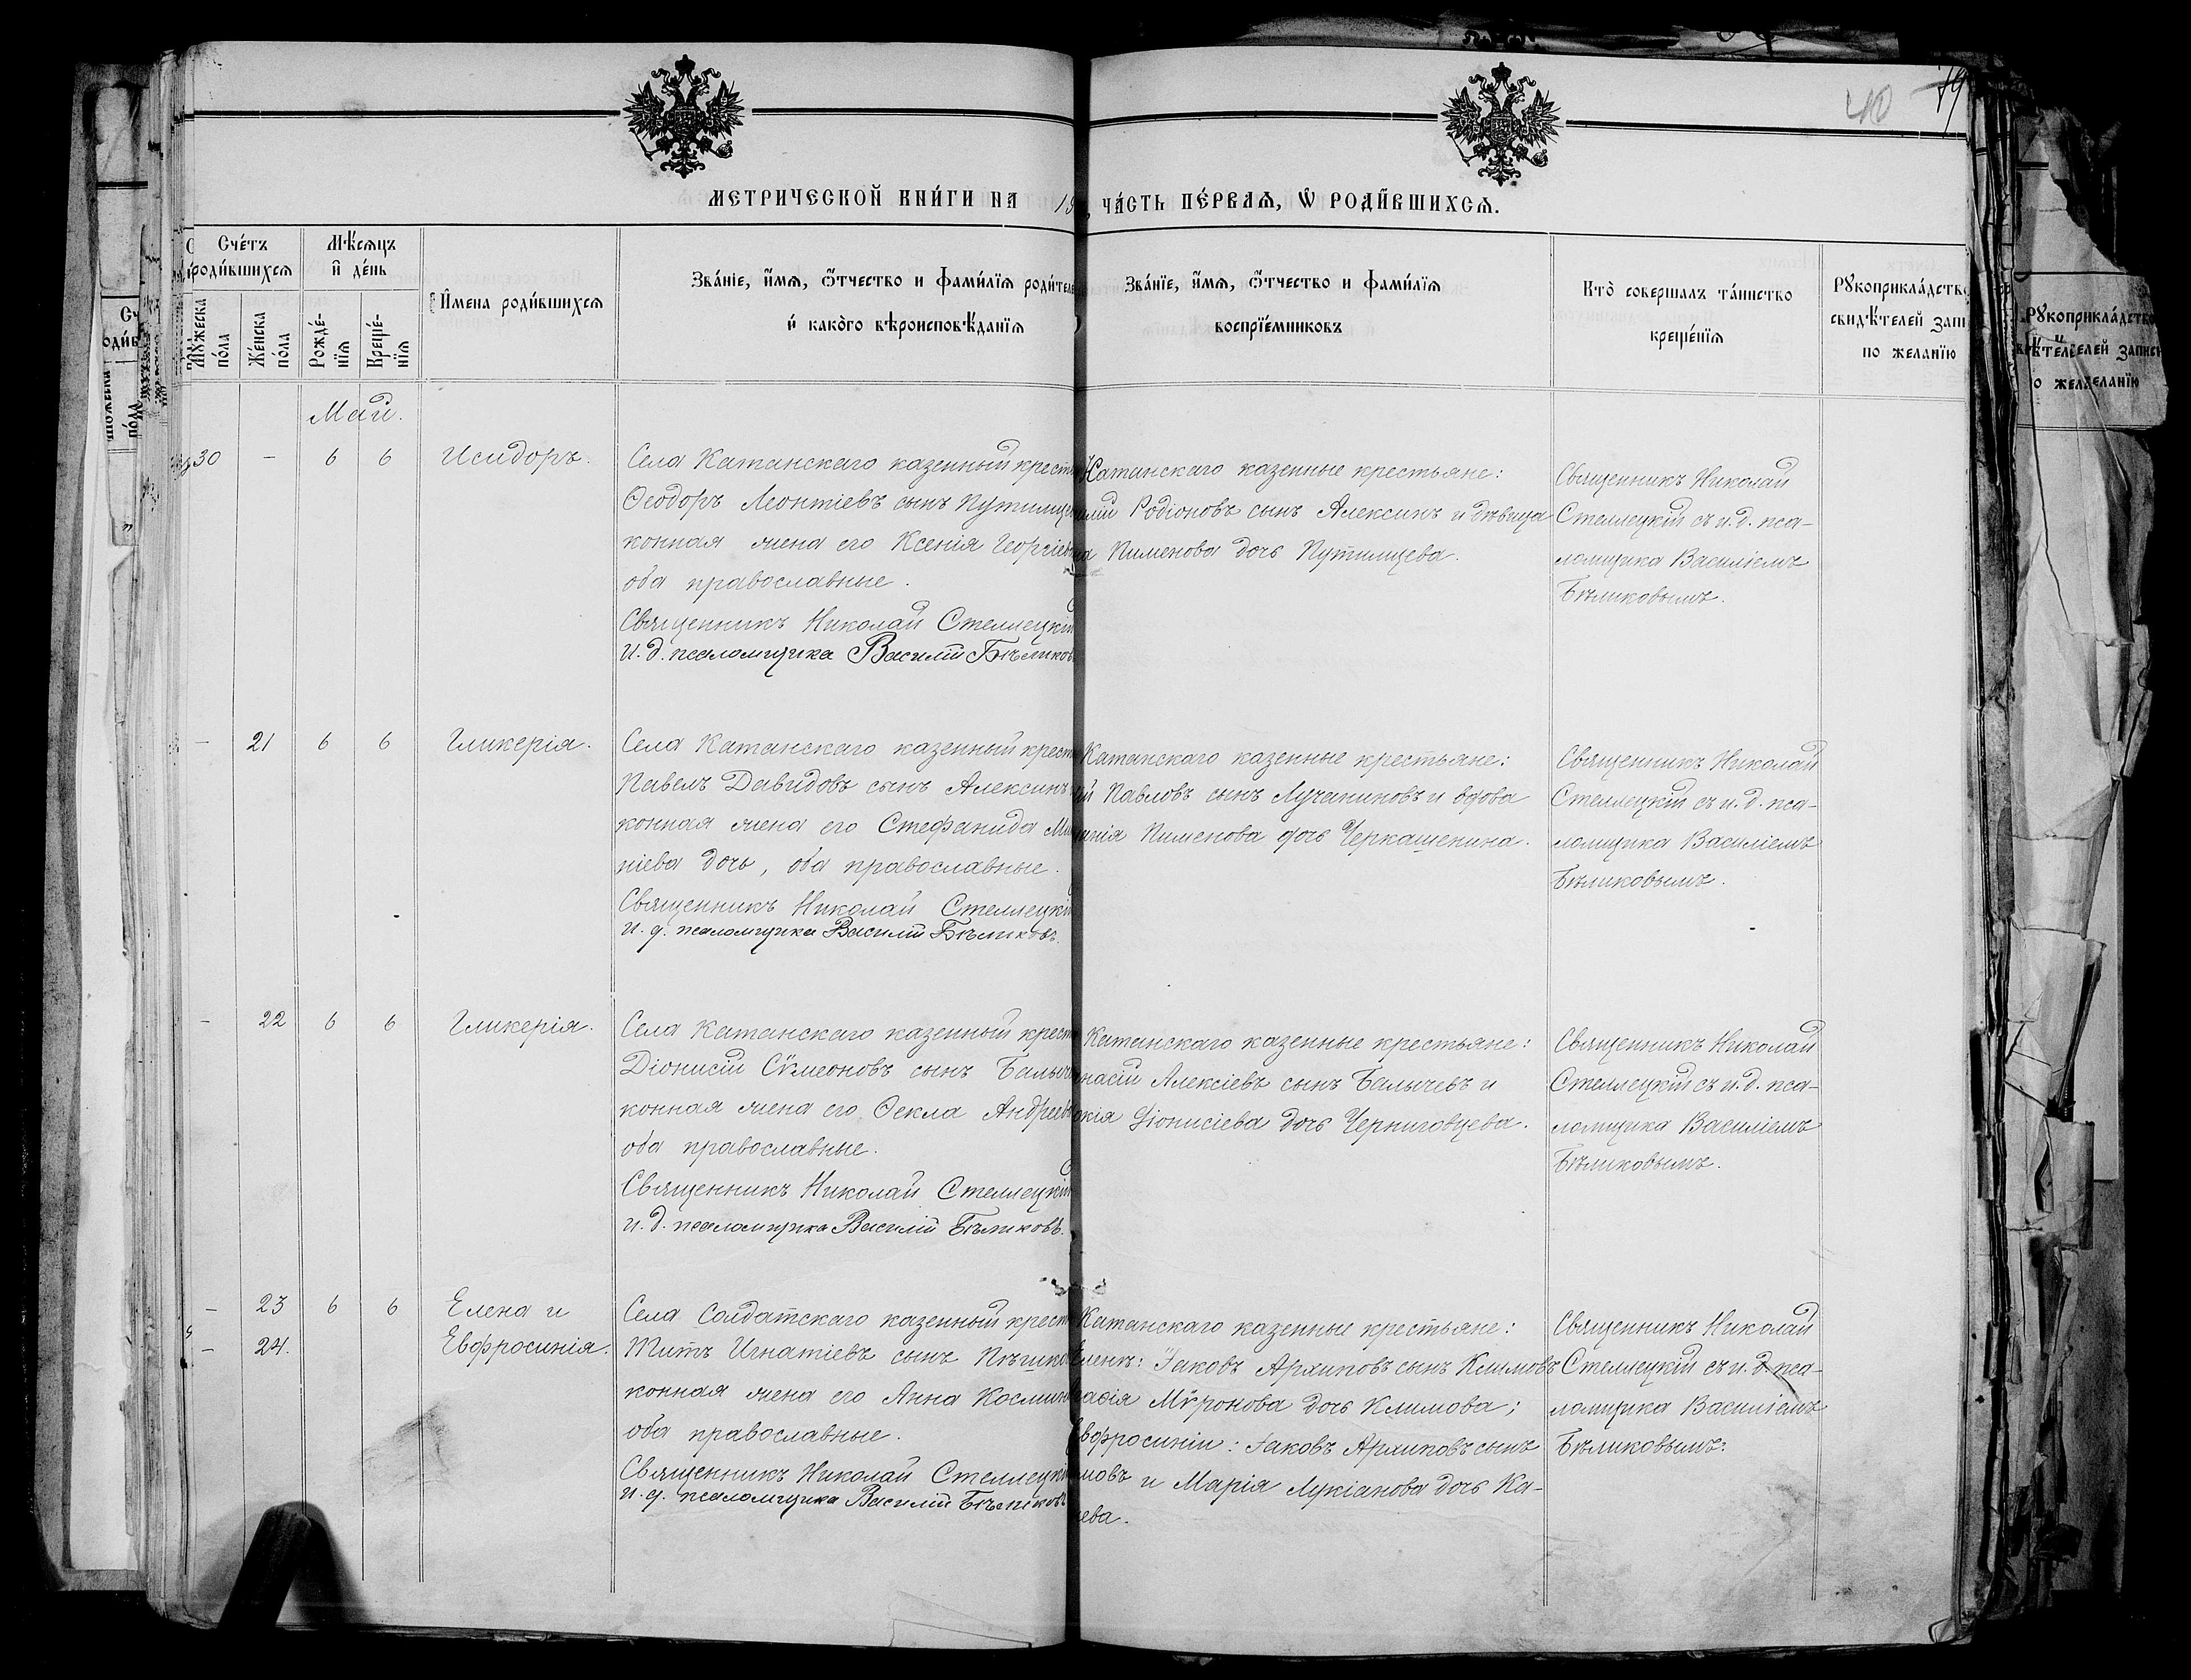 40
МЕТРИЧЕСКОЙ КНИ́ГИ НА 19 ЧА́СТЬ ПЕ́РВАѦ, Ѡ РОДИ́ВШИХСѦ.
Сче́тъ роди́вшихсѧ
Мѣ́сяцъ и де́нь
Имена роди́вшихсѧ
Зва́нїе, и́мѧ, ѻ҆́тчество и фами́лїѧ роди́теле
и како́го вѣроисповѣ́данїѧ
Зва́нїе, и́мѧ, ѻ҆́тчество и фами́лїѧ
воспрїе́мниковъ
Кто̀ совершалъ та́инство
креще́нїѧ
Рꙋкоприкла́дство
свидѣ́телей запи
по желанїю
Мꙋжеска по́ла
Же́нска по́ла
Рожде́нїѧ
Креще́нїѧ
Май.
30 - 6 6 Исидоръ.
Села Катанскаго казенный крест
Ѳеодоръ Леонтіевъ сынъ Путилце
конная жена его Ксенія Георгіев
оба православные.
Священникъ Николай Стеллецкій
И. д. псаломщика Василій Бѣликовъ
Катанскаго казенные крестьяне:
Родіоновъ сынъ Алексинъ и дѣвица
Пименова дочь Путилцева.
Священникъ Николай
Стеллецкій съ и. д. пса-
ломщика Василіемъ
Бѣликовымъ.
- 21 6 6 Гликерія.
Села Катанскаго казенный крест
Павелъ Давидовъ сынъ Алексинъ
конная жена его Стефанида Ми
ніева дочь, оба православные.
Священникъ Николай Стеллецкій
и. д. псаломщика Василій Бѣликовъ.
Катанскаго казенные крестьяне:
й Павловъ сынъ Лучаниновъ и вдова
анія Пименова дочь Черкашенина.
Священникъ Николай
Стеллецкій съ и. д. пса-
ломщика Василіемъ
Бѣликовымъ.
- 22 6 6 Гликерія.
Села Катанскаго казенный крест
Діонисій Сѵмеоновъ сынъ Балыче
конная жена его Ѳекла Андреев
оба православные.
Священникъ Николай Стеллецкій
и. д. псаломщика Василій Бѣликовъ.
Катанскаго казенные крестьяне:
насій Алексіевъ сынъ Балычевъ и
окія Діонисіева дочь Черниговцева.
Священникъ Николай
Стеллецкій съ и. д. пса-
ломщика Василіемъ
Бѣликовымъ.
- 23 6 6 Елена и
- 24. Евфросинія.
Села Солдатскаго казенный крест
Титъ Игнатіевъ сынъ Пѣшко
конная жена его Анна Космин
оба православные.
Священникъ Николай Стеллецкі
и. д. псаломщика Василій Бѣликовъ
Катанскаго казенные крестьяне:
Еленѣ: Іаковъ Архиповъ сынъ Климовъ
Мѵронова дочь Климова;
Евфросиніи: Іаковъ Архиповъ сынъ
мовъ и Марія Лукіанова дочь Ка-
ева.
Священникъ Николай
Стеллецкій съ и. д. пса-
ломщика Василіемъ
Бѣликовымъ.